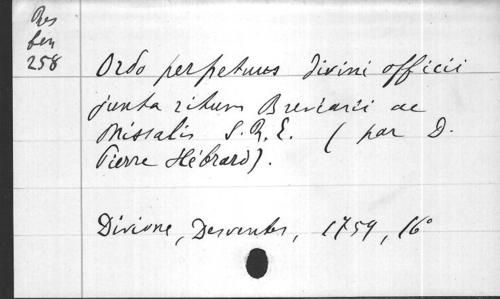 Res
ben
258
Ordo perpetuus divini officii
juxta ritum Breviarii ac
Missalis S.R.E. (par D.
Pierre Hébrard).
Divione, Desventes, 1759, 16°